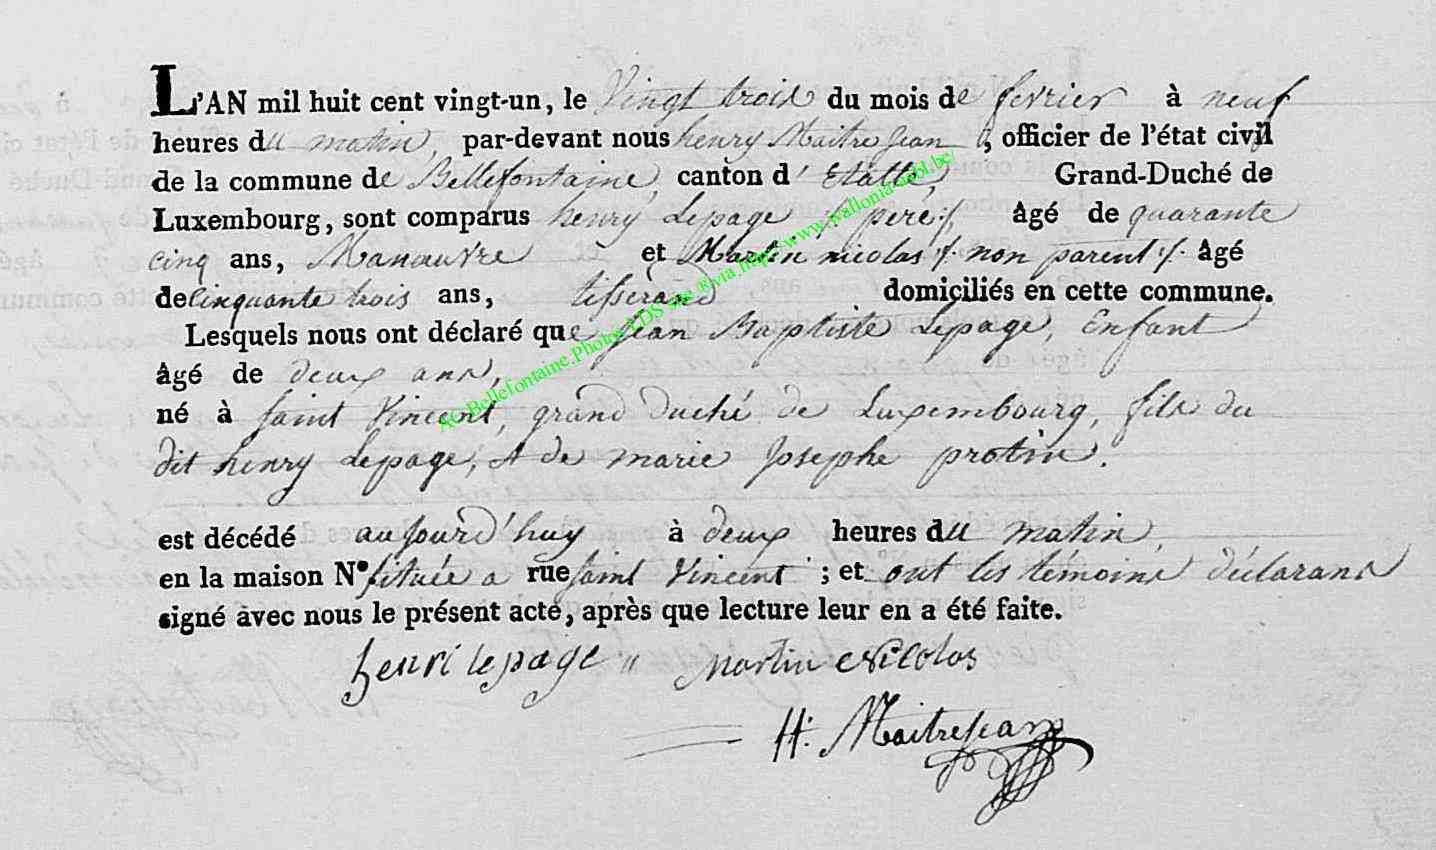 L'AN mil huit cent vingt-un, le Vingt trois du mois de fevrier à neuf
heures du matin, par-devant nous henry Maitrejean, officier de l'état civil
de la commune de Bellefontaine, canton d'Etalle, Grand-Duché de
Luxembourg, sont comparus henry Lepage /: pere :/, âgé de quarante
cinq ans, Manouvre et Martin nicolas /: non parent :/ âgé
de cinquante trois ans, tisserand domiciliés en cette commune.
Lesquels nous ont déclaré que Jean Baptiste Lepage, Enfant
âgé de deux ans,
né à saint Vincent, grand duché de Luxembourg, fils du
dit henry Lepage, et de marie Josephe protin.
est décédé aujourd'huy à deux heures du matin,
en la maison N° située a rue saint Vincent ; et ont les témoins déclarans
signé avec nous le présent acte, après que lecture leur en a été faite.
henri lepage Martin Nicolas
H: Maitrejean